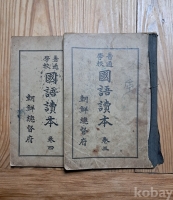 普通
學校
國語讀本
卷四
朝鮮總督府
普通
學校
國語讀本
卷五
朝鮮總督府
kobay